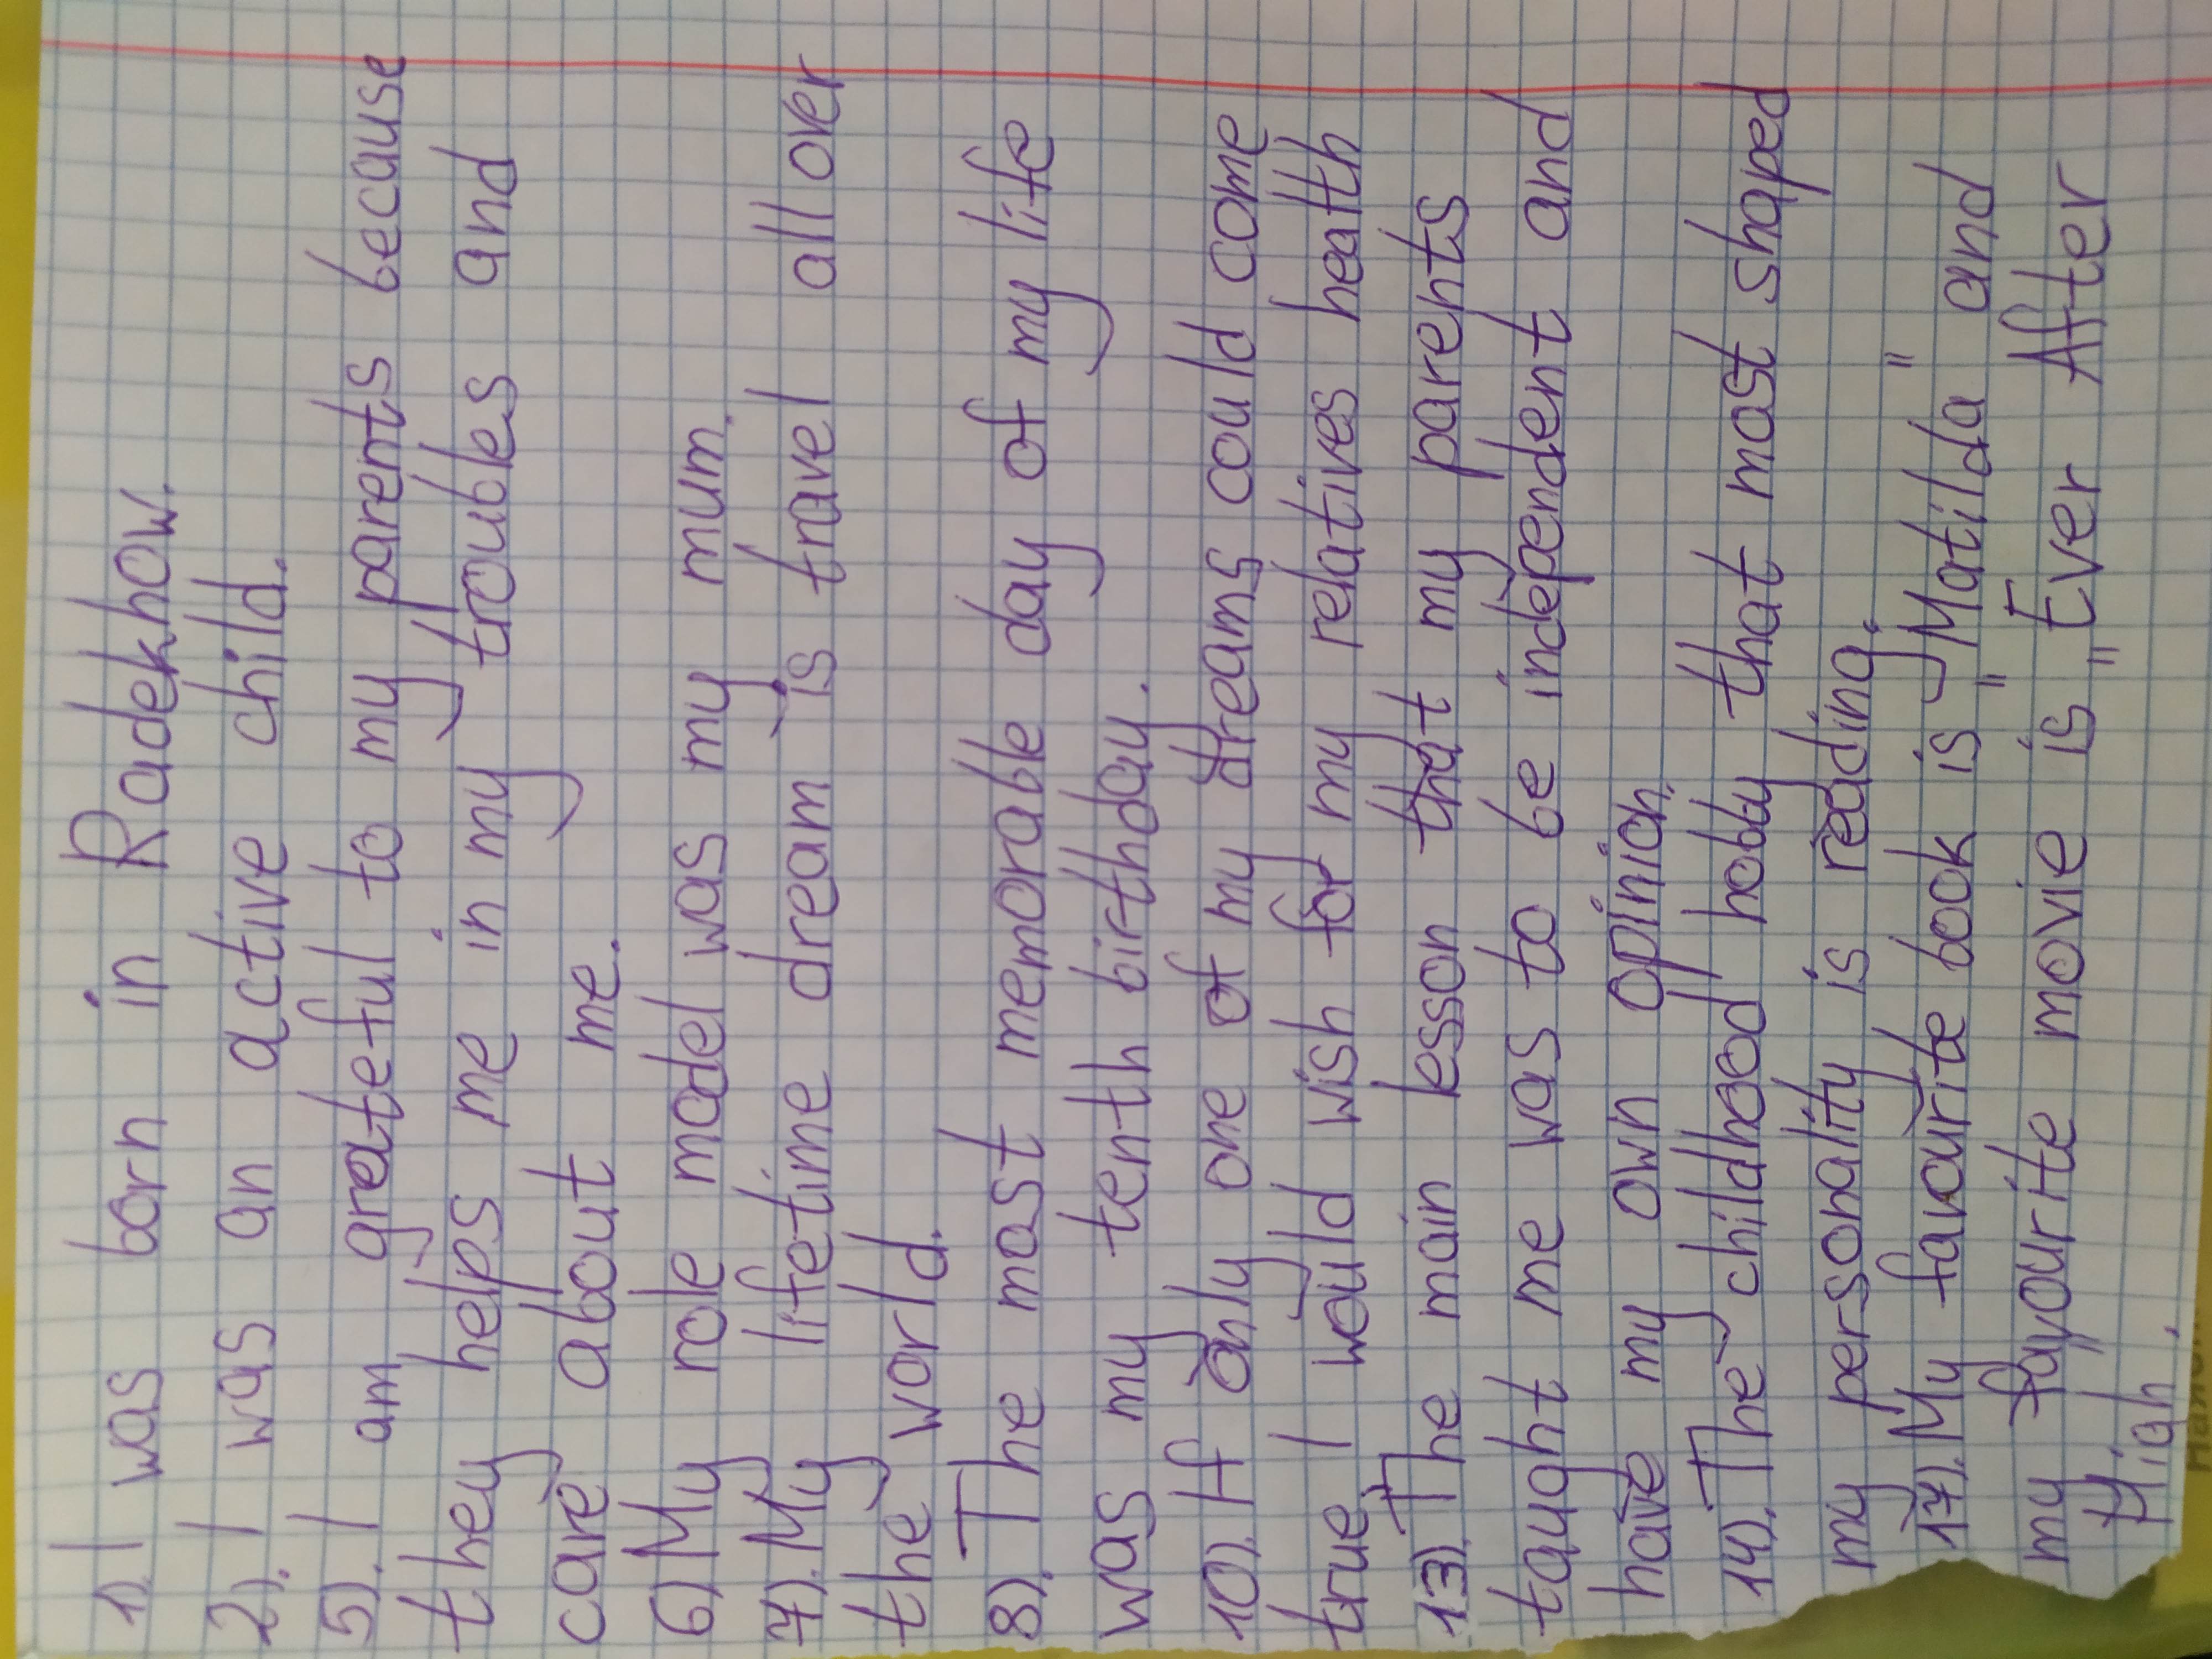 1). I was born in Radekhow.
2). I was an active child.
5). I am grateful to my parents because
they helps me in my troubles and
care about me.
6) My role model was my mum.
7). My lifetime dream is travel all over
the world.
8). The most memorable day of my life
was my tenth birthday.
10). If only one of my dreams could come
true I would wish for my relatives health
13). The main lesson that my parents
taught me was to be independent and
have my own opinion.
14). The childhood hobby that most shaped
my personality is reading.
17). My favourite book is "Matilda" and
my favourite movie is "Ever After
High.